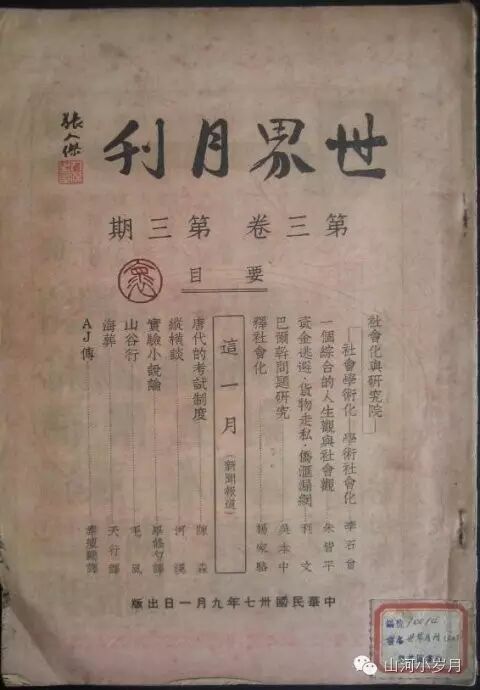 世界月刊
張人傑
第三卷 第三期
要目
社會化與研究院
社會學術化 學術社會化 李石曾
一個綜合的人生觀與社會觀 朱皆平
資金逃避·貨物走私·僑滙漏網 利文
巴爾幹問題研究 吳本中
釋社會化 楊家駱
這一月(新聞報道)
唐代的考試制度 陳森
縱橫談 河漢
實驗小說論 畢修勺譯
山谷行 毛風
海葬 天行譯
AJ傳
中華民國卅七年九月一日出版
山河小岁月